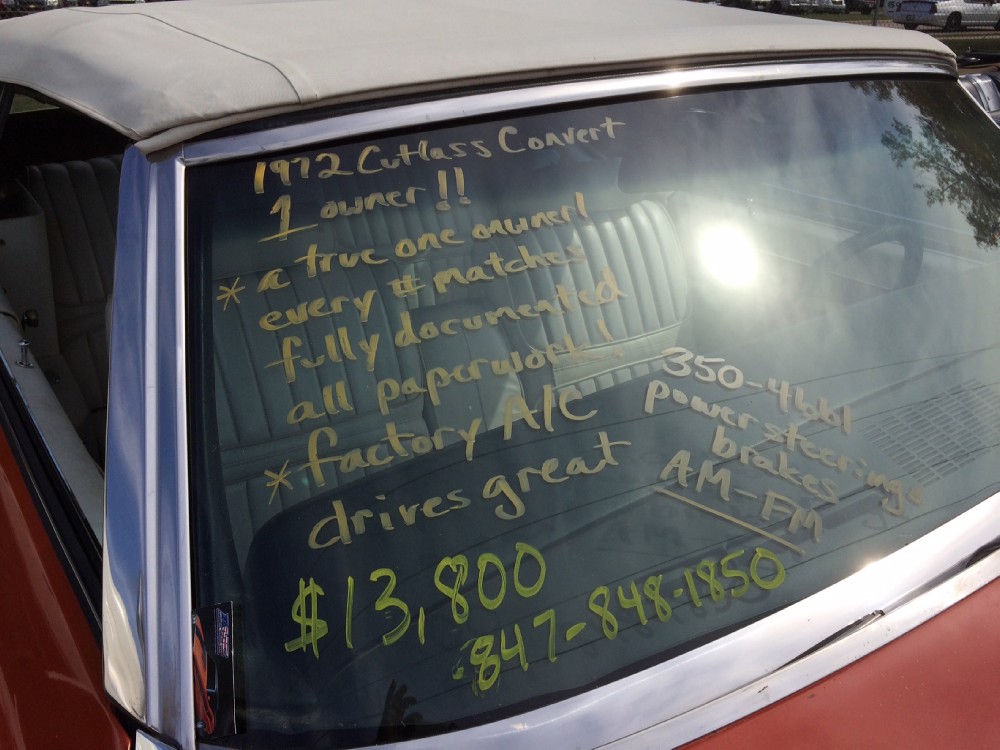 1972 Cutlass Convert
1 owner!!
* a true one onwner!
every # matches
fully documented
all paperwork!
* factory A/C
drives great
350-4bbl
power steering
brakes
AM-FM
$13,800
847-848-1850